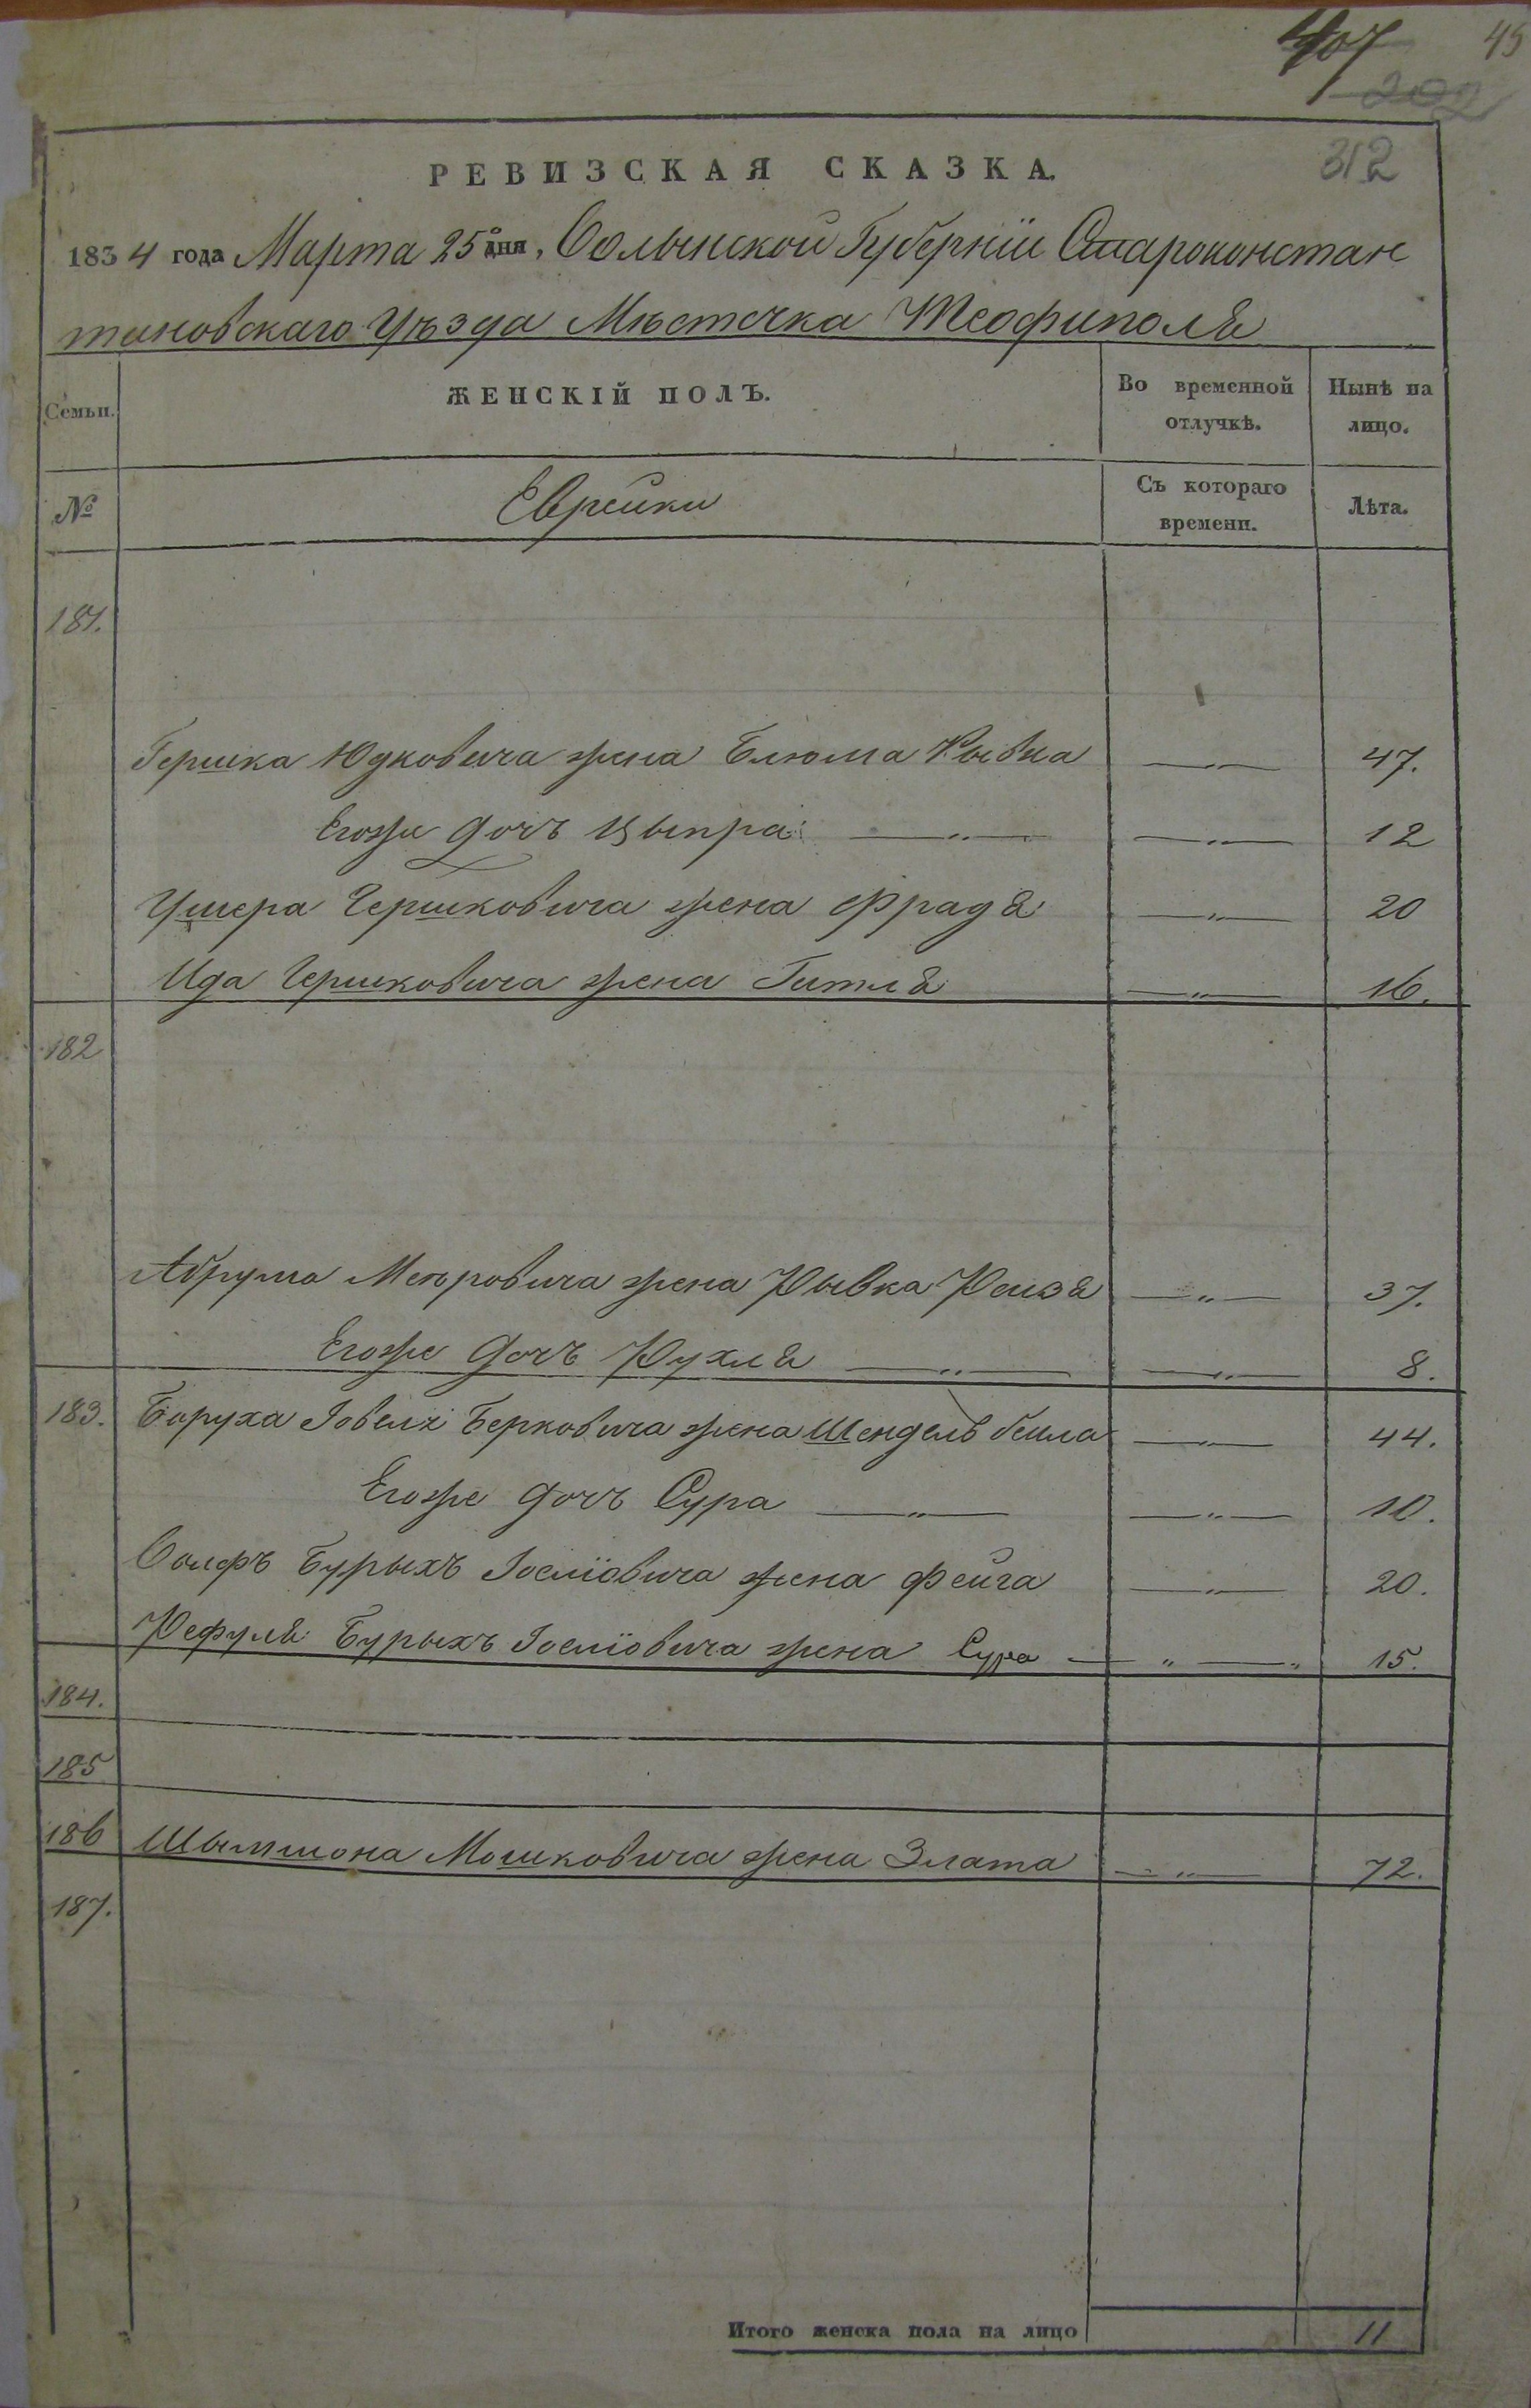 407 45
202
312
РЕВИЗСКАЯ СКАЗКА.
1834 года Марта 25го дня, Волынской Губерніи Староконстан
тиновскаго Уѣзда Мѣстечка Теофиполя
Семьи. ЖЕНСКІЙ ПОЛЪ. Во временной отлучкѣ. Нынѣ на лицо.
№ Еврейки Съ котораго времени. Лѣта.
181.
Гершка Юдковича жена Блюма Рывка — „ — 47.
Егоже дочь Цыпра — „ — — „ — 12
Ушера Гершковича жена Фрадя — „ — 20
Ида Гершковича жена Гитля — „ — 16.
182
Абрума Меюровича жена Рывка Реизя — „ — 37.
Егоже дочь Рухля — „ — — „ — 8.
183. Боруха Берковича жена Шендель беила — „ — 44.
Егоже дочь Сура — „ — — „ — 10.
Волфъ Бурыхъ жена Фейга — „ — 20.
Рефуля Бурыхъ жена Сура — „ — „ 15.
184.
185
186 Шымшона Мошковича жена Злата — „ — 72.
187.
Итого женска пола на лицо 11